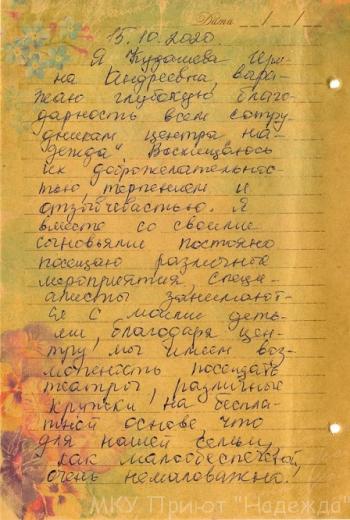 Дата / /
15.10.2020
Я Кудашева Ири-
на Андреевна, выра-
жаю глубокую благо-
дарность всем сотру-
дникам центра "На-
дежда" Восхищаюсь
их доброжелательнос-
тью, терпением и
отзывчевастью. Я
вместе со своими
сыновьями постояно
посещаю различные
мероприятия, специ-
алисты занимают-
ся с моими деть-
ми, благодаря цен-
тру, мы имеем воз-
можность посещать
театры, различные
кружки, на беспла-
тной основе, что
для нашей семьи,
как малообеспеченой,
очень немаловажно!
МКУ Приют "Надежда"